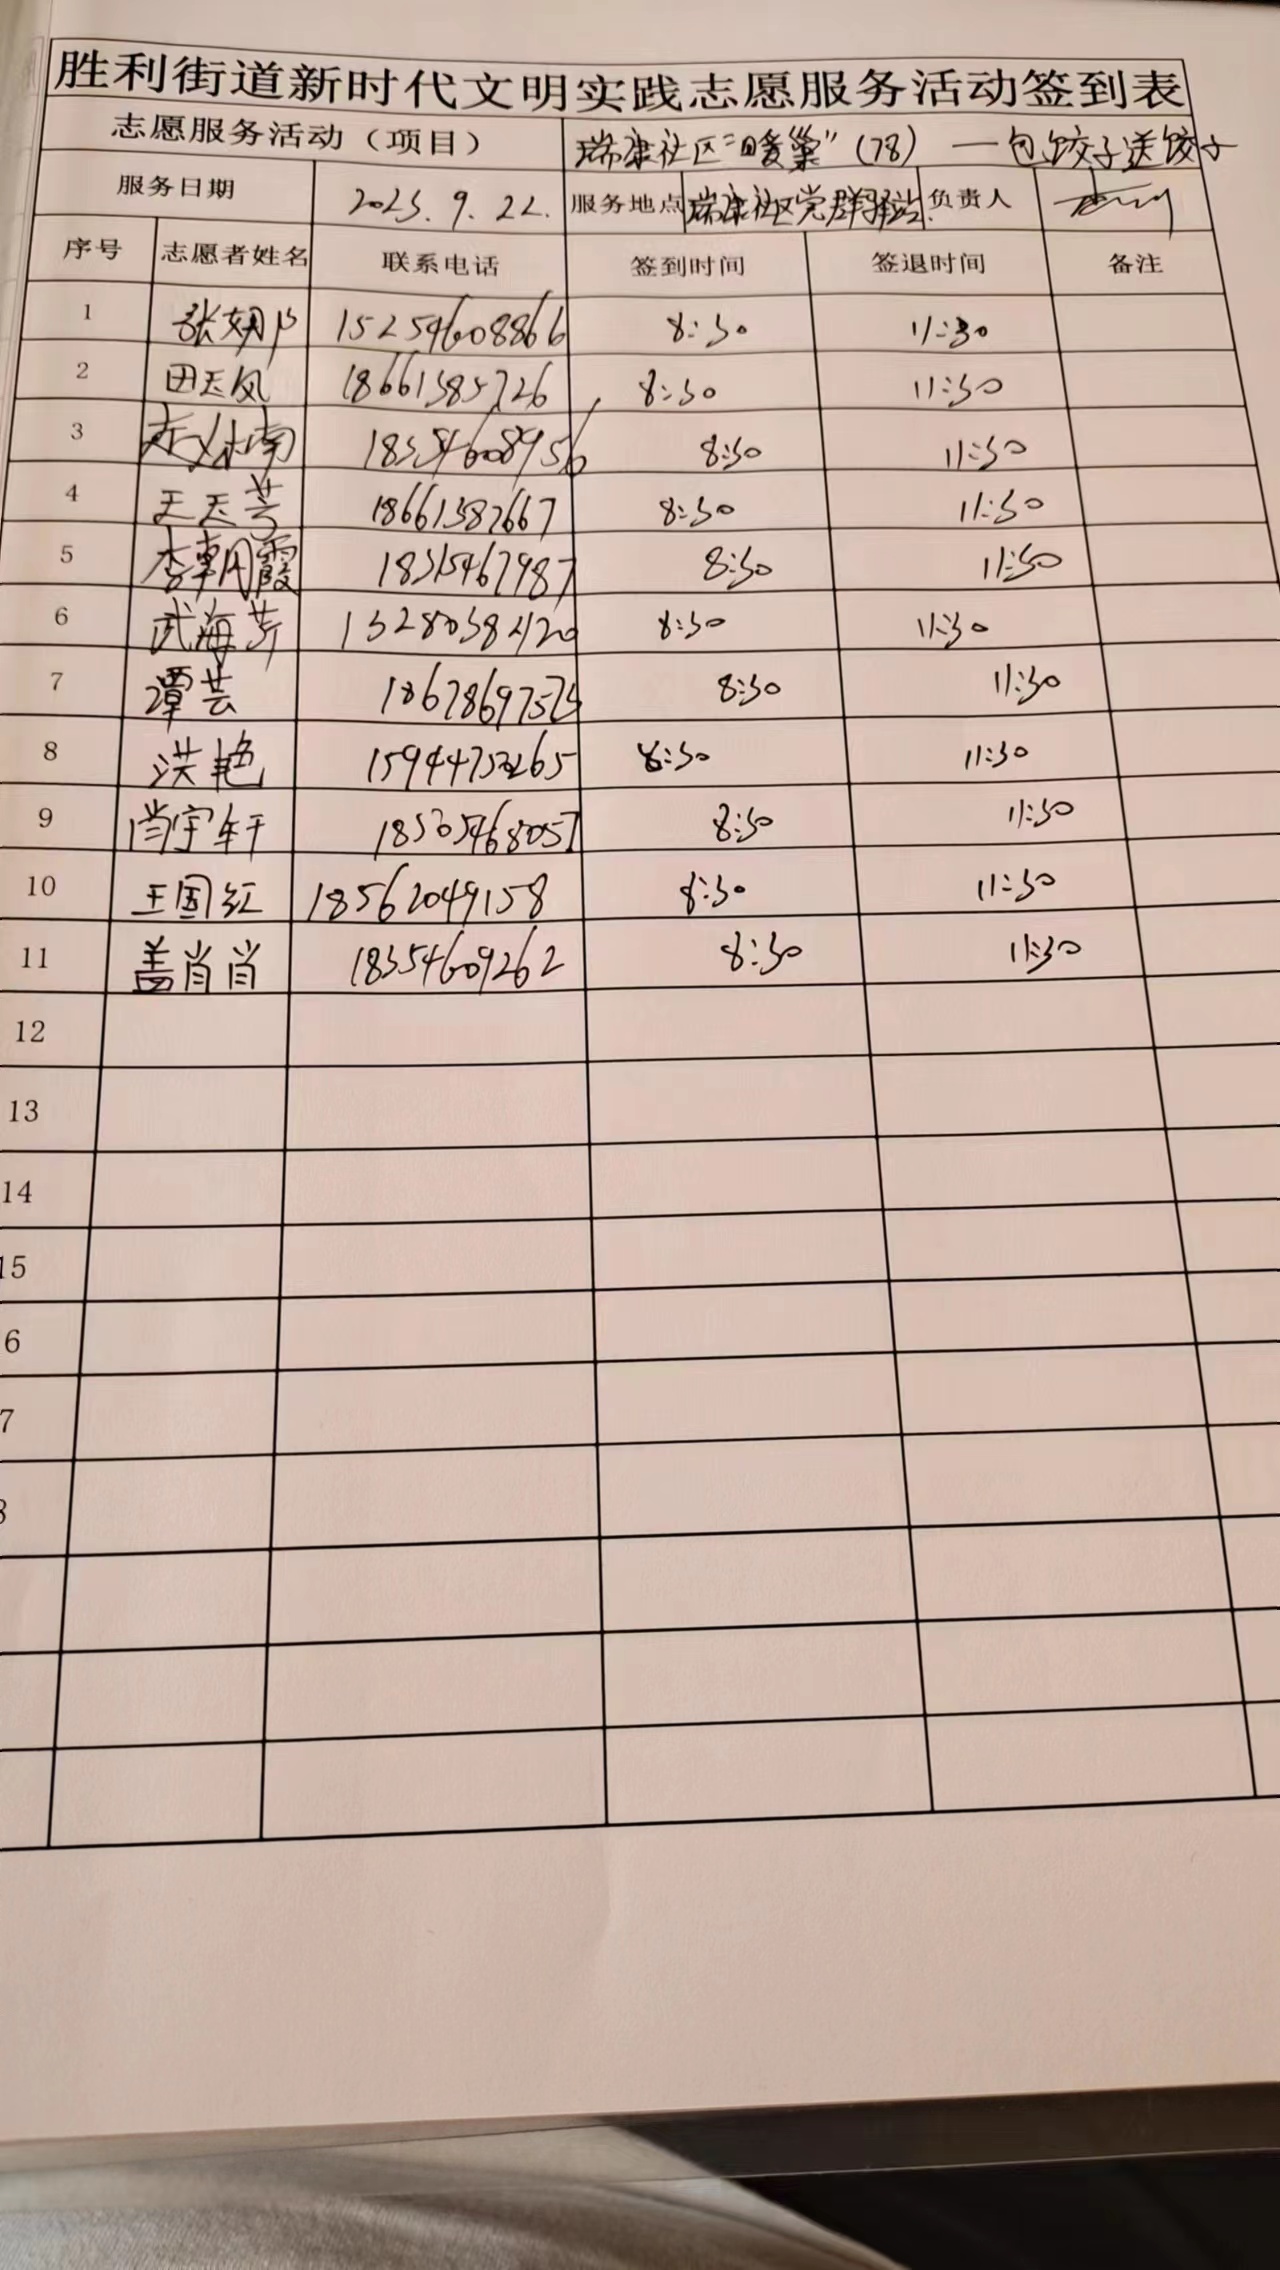 胜利街道新时代文明实践志愿服务活动签到表
志愿服务活动（项目） 瑞康社区"暖巢"（78）—包饺子送饺子
服务日期 2023.9.22. 服务地点 瑞康社区党群驿站. 负责人
序号 志愿者姓名 联系电话 签到时间 签退时间 备注
1 15254608866 8:30 11:30
2 田玉凤 18661385726 8:30 11:30
3 18354608956 8:30 11:30
4 18661387667 8:30 11:30
5 李朝霞 18315467987 8:30 11:30
6 武海芳 8:30 11:30
7 谭芸 8:30 11:30
8 洪艳 8:30 11:30
9 肖宇轩 8:30 11:30
10 王国红 18562049158 8:30 11:30
11 盖肖肖 18354609262 8:30 11:30
12
13
14
15
6
7
8